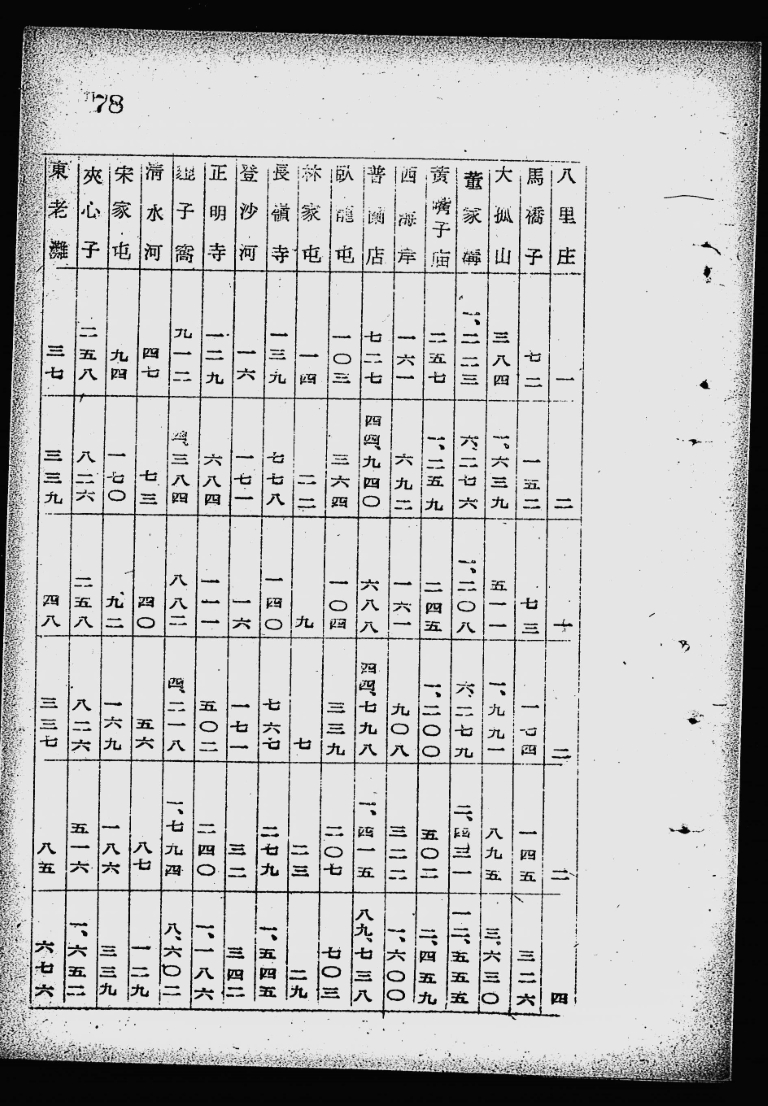 78
八里庄 一 二 一 二 二 四
馬橋子 七二 一五二 七三 一七四 一四五 三二六
大孤山 三八四 一、六三九 五一一 一、九九一 八九五 三、六三〇
董家溝 一、二二三 六、二七六 一、二〇八 六、二七九 二、四三一 一二、五五五
黃嘴子庙 二五七 一、二五九 二四五 一、二〇〇 五〇二 二、四五九
西海岸 一六一 六九二 一六一 九〇八 三二二 一、六〇〇
普蘭店 七二七 四四、九四〇 六八八 四四、七九八 一、四一五 八九、七三八
臥龍屯 一〇三 三六四 一〇四 三三九 二〇七 七〇三
林家屯 一四 二二 九 七 二三 二九
長嶺寺 一三九 七七八 一四〇 七六七 二七九 一、五四五
登沙河 一六 一七一 一六 一七一 三二 三四二
正明寺 一二九 六八四 一一一 五〇二 二四〇 一、一八六
貔子窩 九一二 四、三八四 八八二 四、二一八 一、七九四 八、六〇二
清水河 四七 七三 四〇 五六 八七 一二九
宋家屯 九四 一七〇 九二 一六九 一八六 三三九
夾心子 二五八 八二六 二五八 八二六 五一六 一、六五二
東老灘 三七 三三九 四八 三三七 八五 六七六